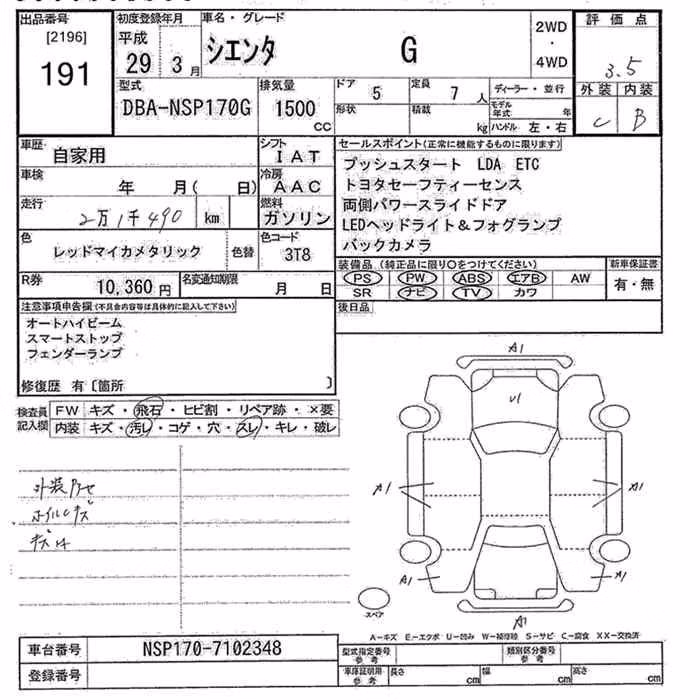 出品番号
[2196]
191
初度登録年月
平成
29 3月
車名・グレード
シエンタ G
2WD
・
4WD
評価点
3.5
外装 内装
C B
型式
DBA-NSP170G
排気量
1500
cc
ドア 5
定員 7 人
形状
積載 kg
ディーラー・並行
モデル年式 年
ハンドル 左・右
車歴
自家用
シフト
IAT
車検
年 月( 日)
冷房
AAC
走行
2万1千490 km
燃料
ガソリン
色
レッドマイカメタリック
色替
色コード
3T8
R券
10,360円
名変通知期限
月 日
セールスポイント(正常に機能するものに限ります)
プッシュスタート LDA ETC
トヨタセーフティーセンス
両側パワースライドドア
LEDヘッドライト&フォグランプ
バックカメラ
装備品(純正品に限り○をつけてください)
PS PW ABS エアB AW
SR ナビ TV カワ
新車保証書
有・無
後日品
注意事項申告欄(不具合内容等は具体的に記入して下さい)
オートハイビーム
スマートストップ
フェンダーランプ
修復歴 有〔箇所 〕
検査員
記入欄
FW キズ・飛石・ヒビ割・リペア跡・×要
内装 キズ・汚レ・コゲ・穴・スレ・キレ・破レ
外装
キズ
A1
U1
A1
A1
A1
A1
A1
スペア
A―キズ E―エクボ U―凹み W―補修跡 S―サビ C―腐食 XX―交換済
車台番号
NSP170-7102348
登録番号
型式指定番号
参考
類別区分番号
参考
車庫証明用
参考
長さ cm
幅 cm
高さ cm